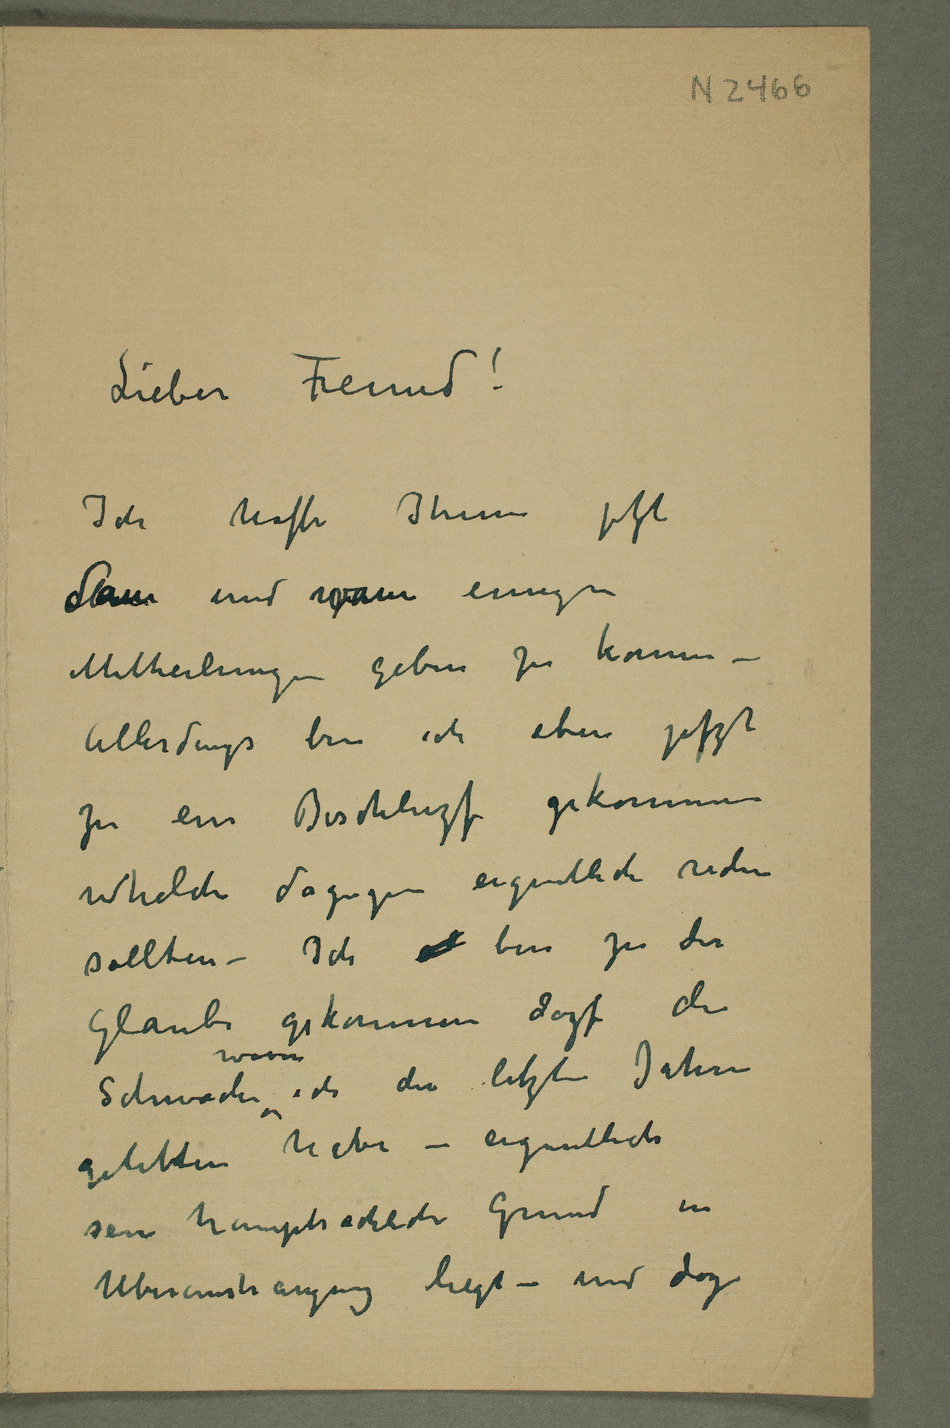 N 2466
Lieber Freund!
Ich hoffe Ihnen jetzt
dann und wann einige
Mittheilungen geben zu können –
Allerdings bin ich eben jetzt
zu ein Beschluzs gekommen
welche dagegen eigentlich reden
sollten – Ich bin zu der
Glaube gekommen dazs die
wovon
Schwäche ich die letzte Jahre
gelitten habe – eigentlich
sein hauptsächliche Grund in
Uberanstrangung liegt – und daz